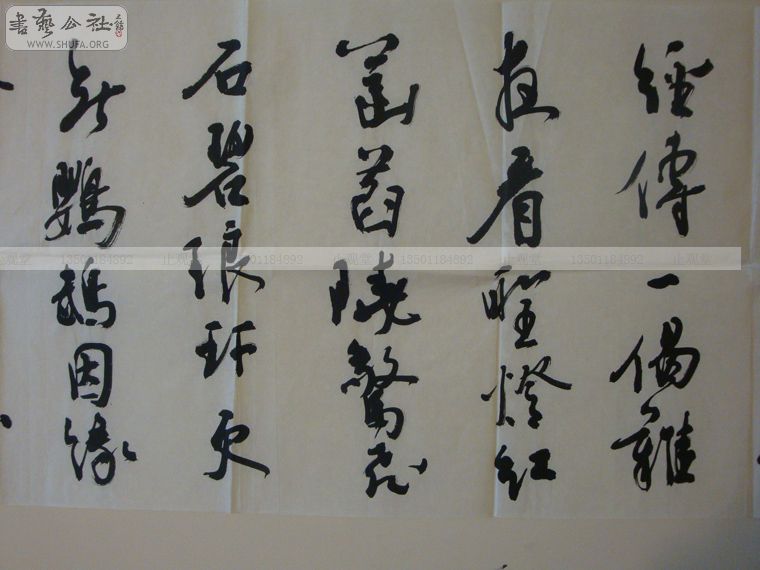 書藝公社
WWW.SHUFA.ORG
經傳一偈難
夜看聖燈紅
菡萏曉驚飛
石碧琅玕更
無鸚鵡因緣
止观堂 13501184892 止观堂 13501184892 止观堂 13501184892